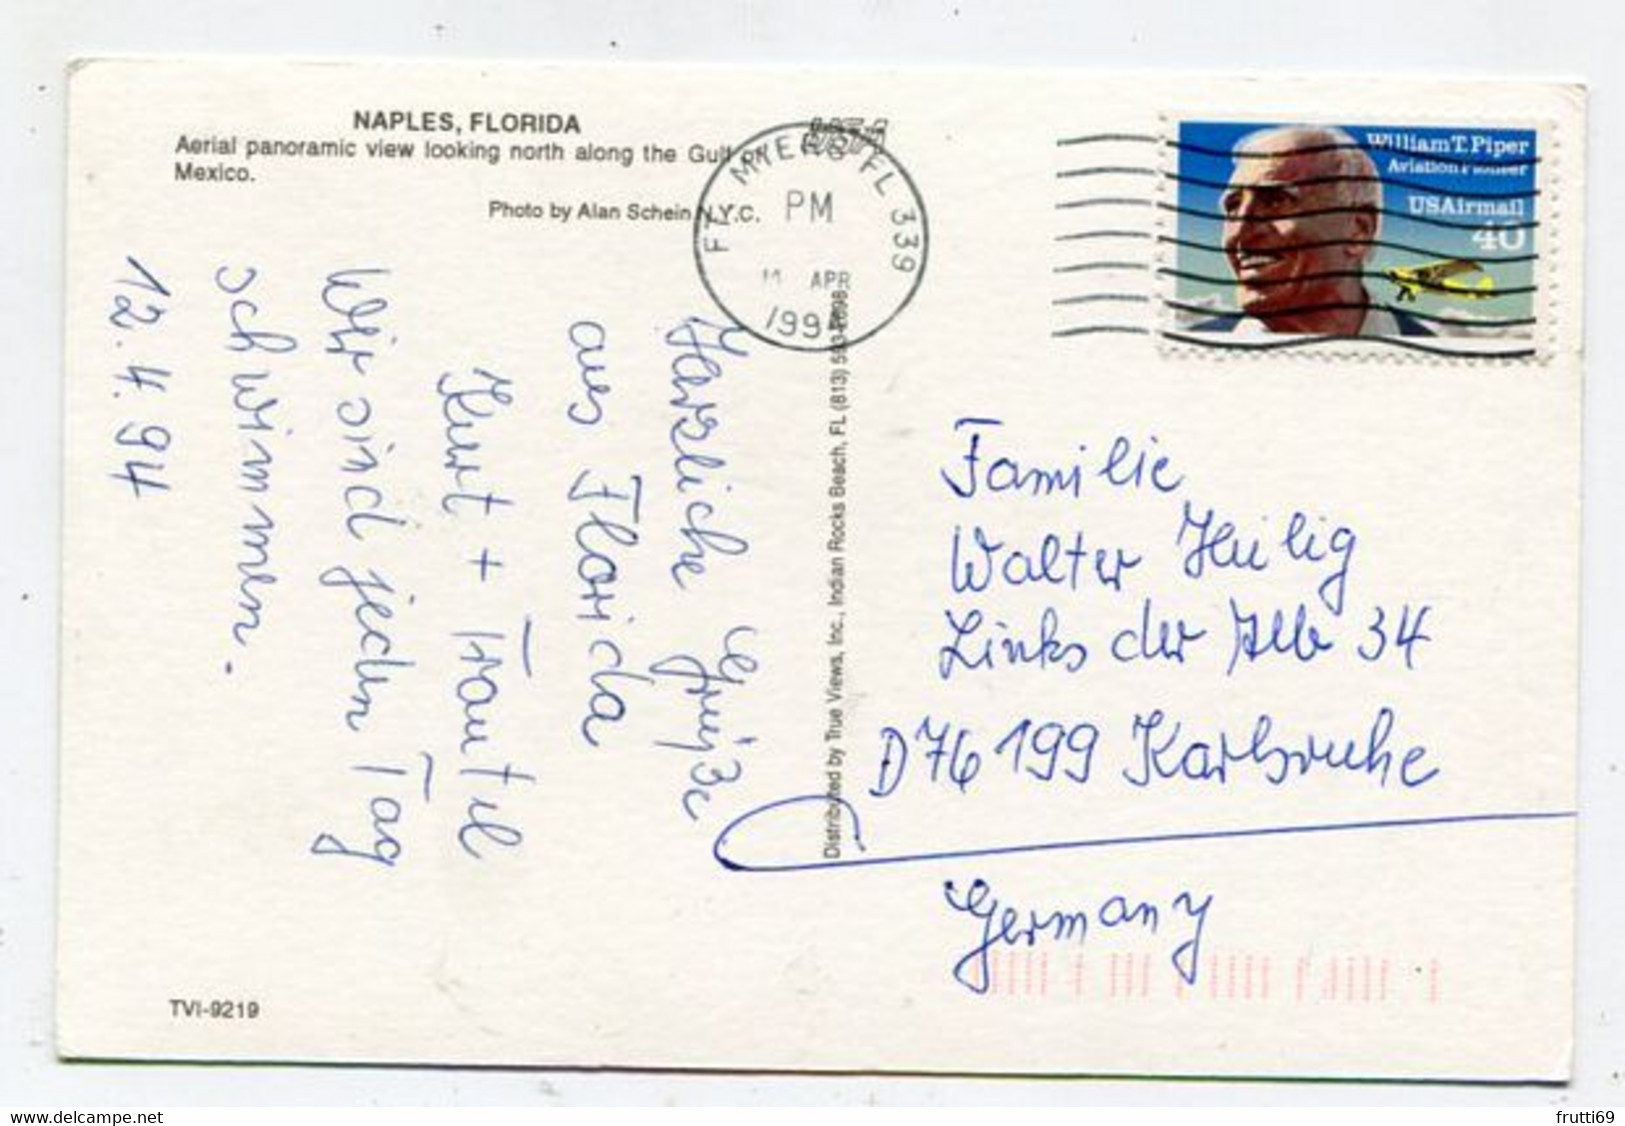 NAPLES, FLORIDA
Aerial panoramic view looking north along the Gulf of
Mexico.
Photo by Alan Schein N.Y.C.
FT MYERS FL 339
USA
PM
APR
1994
William T. Piper
Aviation Pioneer
USAirmail
40
Herzliche Grüße
aus Florida
Kurt + Trautel
Wir sind jeden Tag
schwimmen.
12.4.94
Distributed by True Views, Inc., Indian Rocks Beach, FL (813)
Familie
Walter Heilig
Links der Alb 34
D 76199 Karlsruhe
Germany
TVI-9219
www.delcampe.net
frutti69